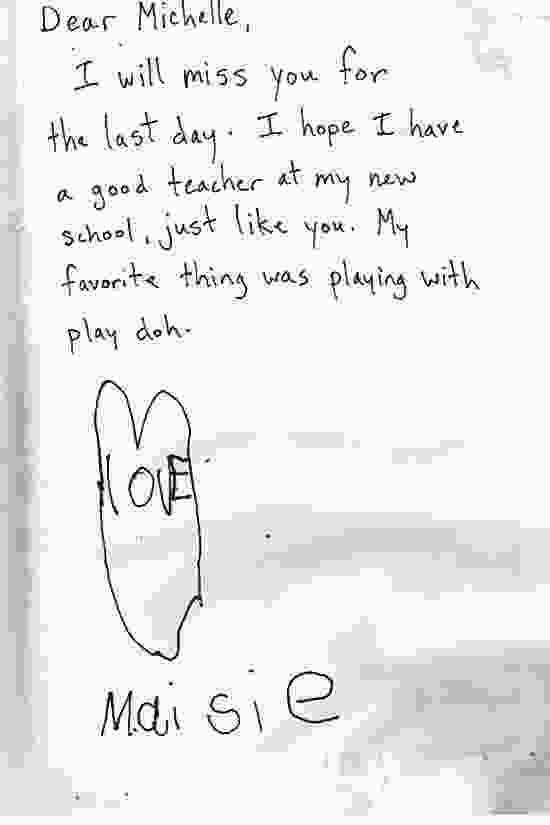 Dear Michelle,
I will miss you for
the last day. I hope I have
a good teacher at my new
school, just like you. My
favorite thing was playing with
play doh.
LOVE
Maisie